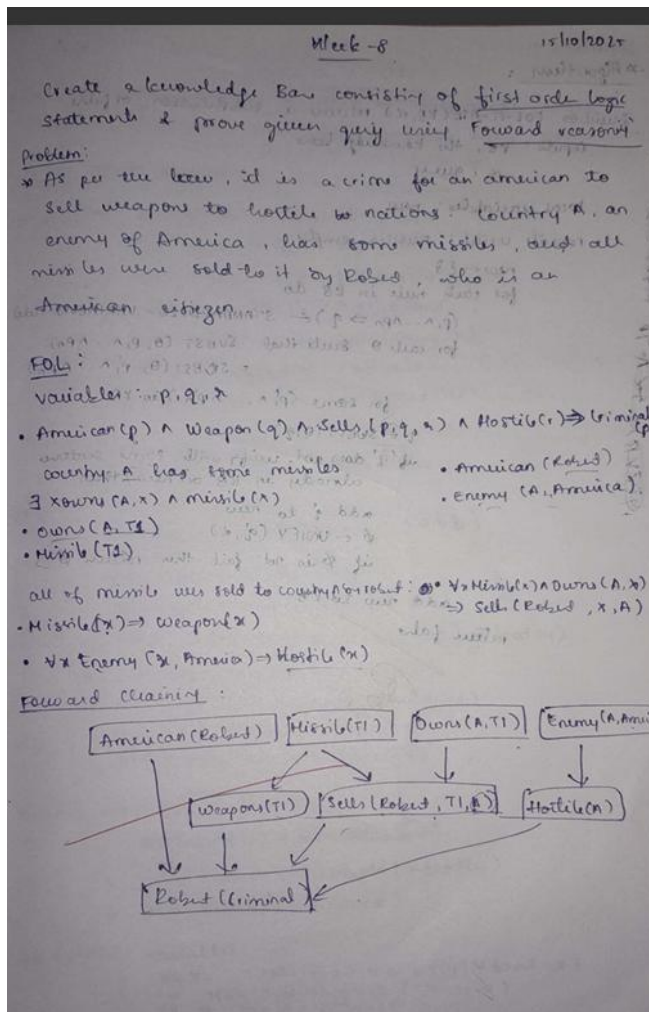 Week - 8
15/10/2025
Create a knowledge Base consisting of first order logic
statements & prove given query using Forward reasoning
Problem:
As per the law, it is a crime for an american to
sell weapons to hostile nations. Country A, an
enemy of America, has some missiles, and all
missiles were sold to it by Robert, who is an
American citizen
FOL:
variables: p, q, r
• American(p) ∧ Weapon(q) ∧ Sells(p,q,r) ∧ Hostile(r) ⇒ Criminal(p)
country A has some missiles
• American (Robert)
∃ x owns (A, x) ∧ missile (x)
• Enemy (A, America)
• owns (A, T1)
• Missile (T1)
all of missile was sold to country A by robert: • ∀x Missile(x) ∧ Owns (A, x)
⇒ Sells (Robert, x, A)
• Missile(x) ⇒ Weapon(x)
• ∀x Enemy (x, America) ⇒ Hostile (x)
Forward Chaining :
American (Robert)
Missile(T1)
Owns (A, T1)
Enemy (A, Ame
Weapons (T1)
Sells (Robert, T1, A)
Hostile(A)
Robert (Criminal)